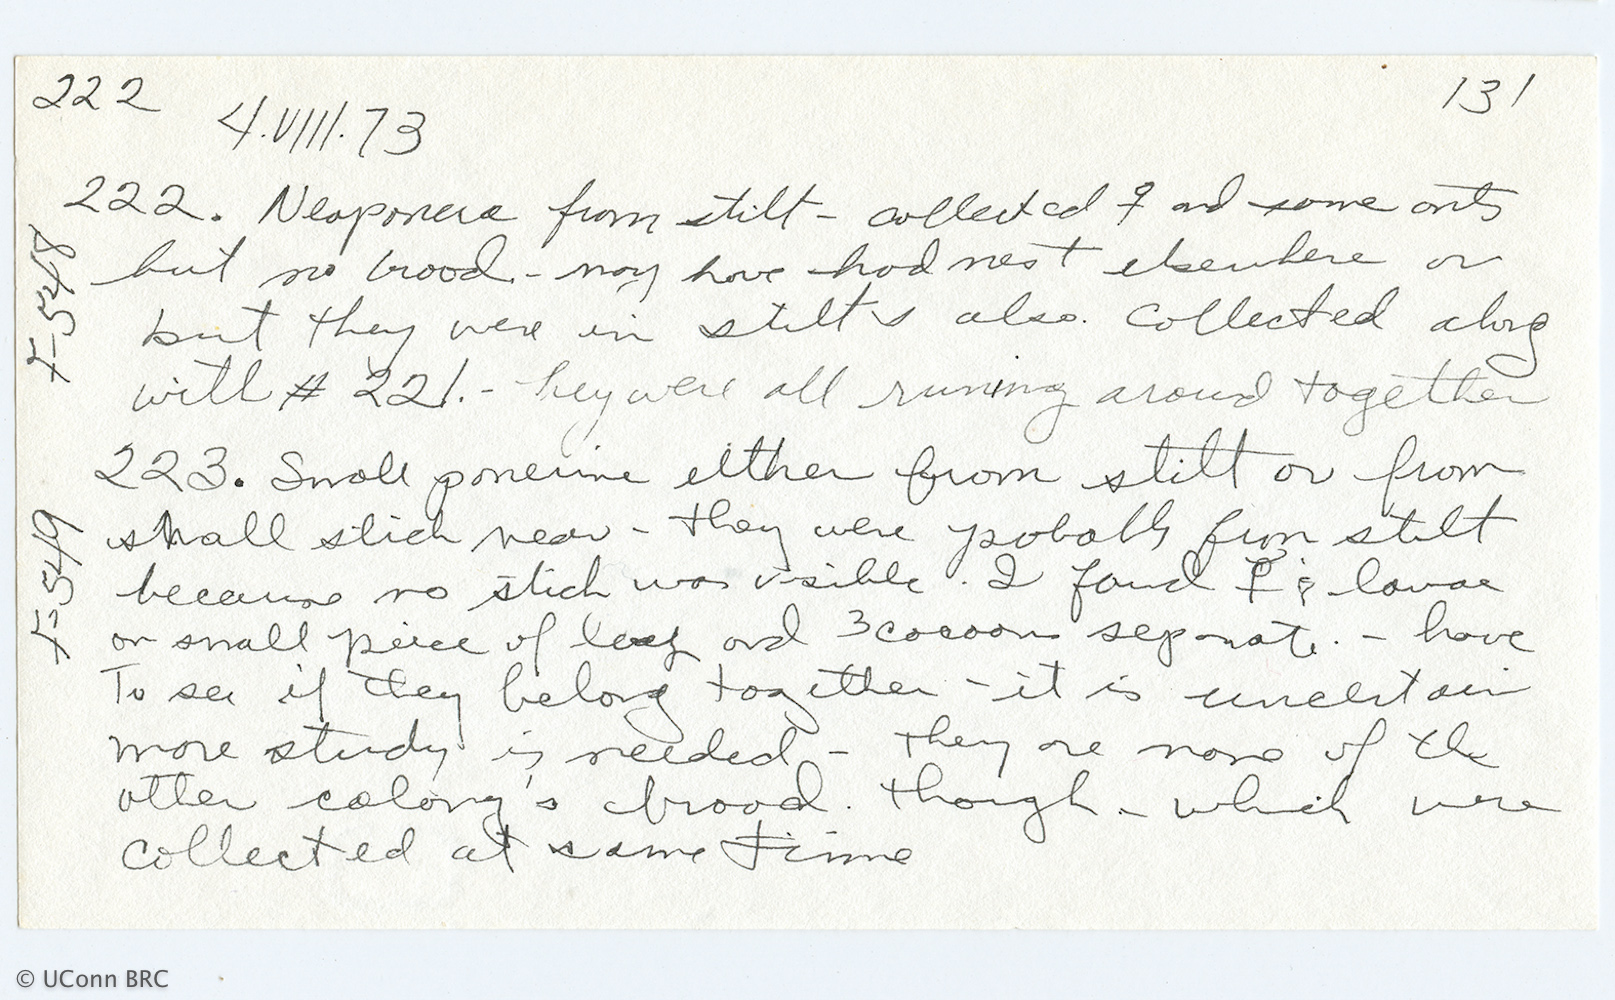 222
131
4.VIII.73
222. Neoponera from stilt - collected ♀ and some ants
F-548
but no brood - may have had nest elsewhere or
but they were in stilts also. Collected along
with # 221. - hey were all runing around together
223. Small ponerine either from stilt or from
F-549
small stick near - they were probably from stilt
because no stick was visible. I found ♀ & larvae
on small piece of and 3 cocoons separate. - have
To see if they belong together - it is uncertain
more study is needed - they are none of the
other colony's brood. though - which were
collected at same time
© UConn BRC